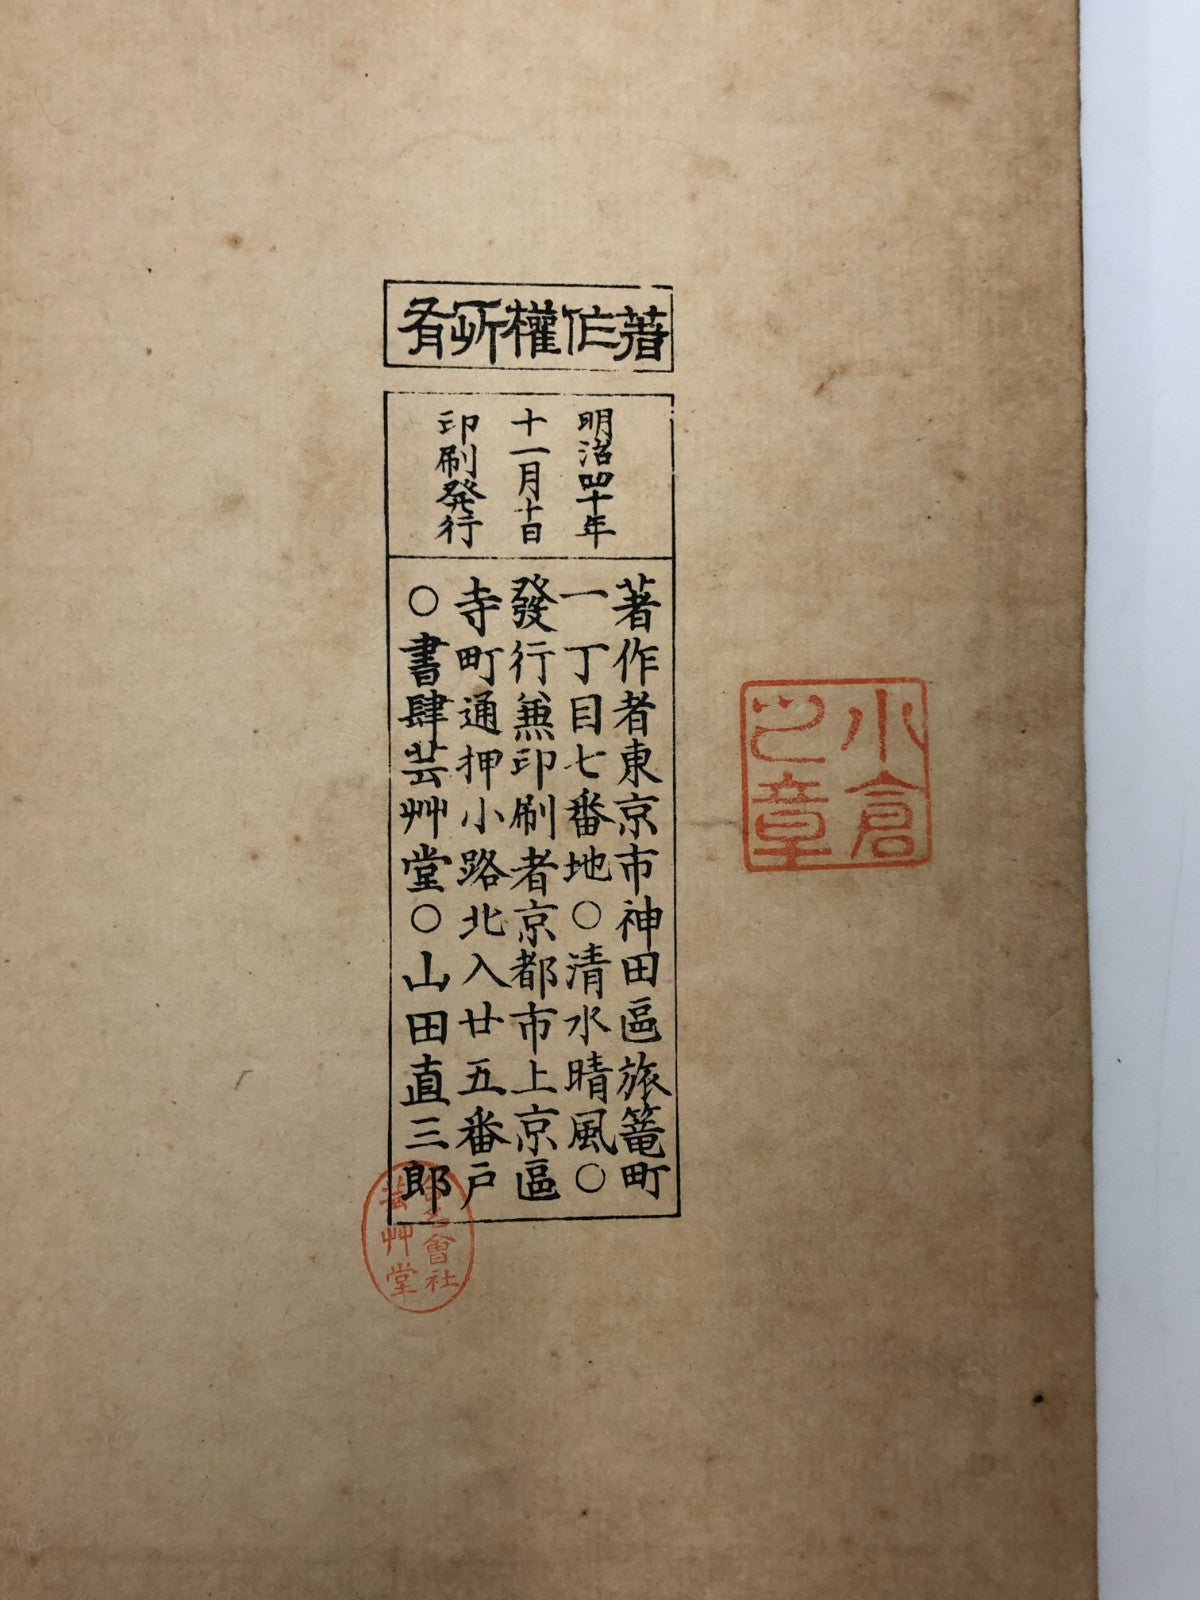 著作權所有
明治四十年
十一月十日
印刷発行
著作者東京市神田區旅篭町
一丁目七番地○清水晴風○
發行兼印刷者京都市上京區
寺町通押小路北入廿五番戸
○書肆芸艸堂○山田直三郎
小倉
之章
合名會社
芸艸堂